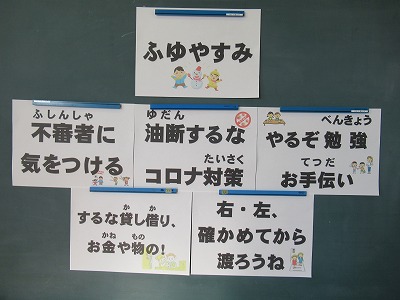 ふゆやすみ
ふしんしゃ
不審者に
気をつける
ゆだん
油断するな
たいさく
コロナ対策
べんきょう
やるぞ勉強
てつだ
お手伝い
か か
するな貸し借り、
かね もの
お金や物の!
右・左、
確かめてから
渡ろうね